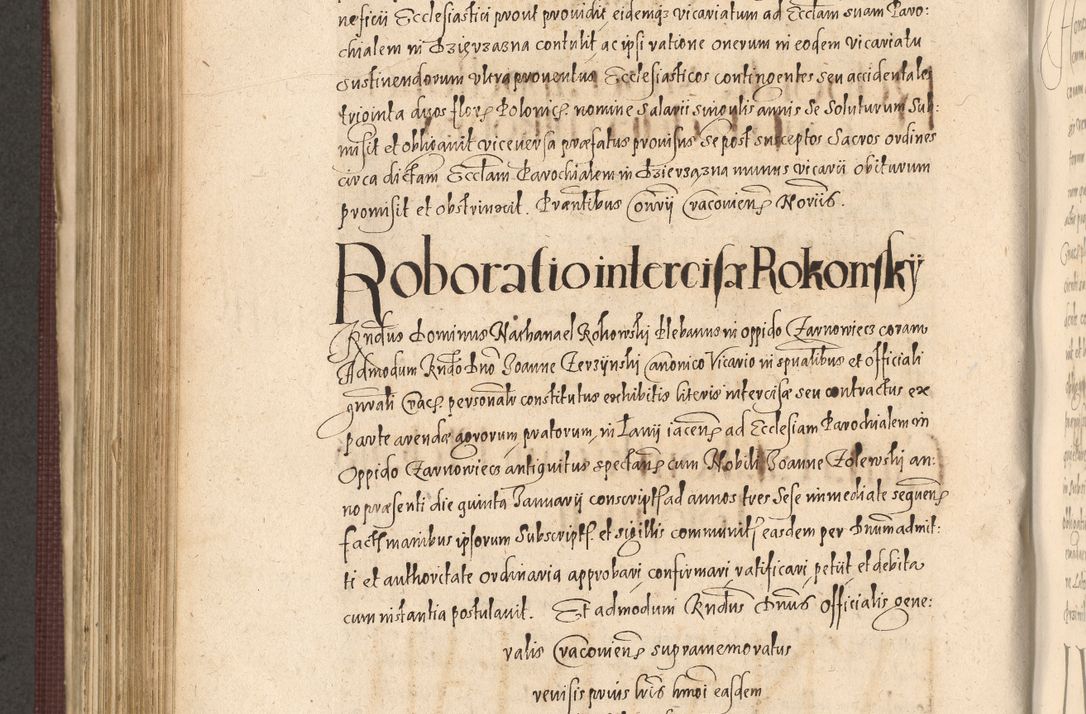 neficii Ecclesiastici prout prouidit eidemqꝫ vicariatum ad Eccłam suam Paro:
chialem in Dzierzazna contulit ac ipsi ratione onerum in eodem vicariatu
sustinendorum vltra prouentus Ecclesiasticos contingentes seu accidentales
triginta duos flor: Polonic: nomine Salarii singulis annis se soluturum Sub:
misit et obligauit viceuersa præfatus prouisus se post susceptos Sacros ordines
circa dictam Eccłam Parochialem in Dzierzązna munus vicarii obiturum
promisit et obstrinxit. Præntibus Conrij Cracovien: Noriis.
Roboratio intercisæ Rokowskÿ
Rndus Dominus Nathanael Rokowskij Plebanus in oppido Zarnowiecz coram
Admodum Rndo Dno Joanne Zerzynskj Canonico Vicario in spualibus et Officiali
gnrali Crac: personalr constitutus exhibitis literis intercisæ seu contractus ex
parte arendæ agrorum pratorum, in Lanij iacen: ad Ecclesiam Parochialem in
Oppido Zarnowiecz antiquitus spectan: cum Nobili Joanne Zolewskj an:
no præsenti die quinta Januarij conscript: ad annos tres sese immediate sequen:
fact: manibus ipsorum Subscript: et sigillis communit: easdem per Dnum admit:
ti et authoritate ordinaria approbari confirmari ratificari petiit et debita
cum instantia postulauit. Et admodum Rndus Dnus Officialis gene:
ralis Cracovien: supramemoratus
reuisis prius lris hmoi easdem